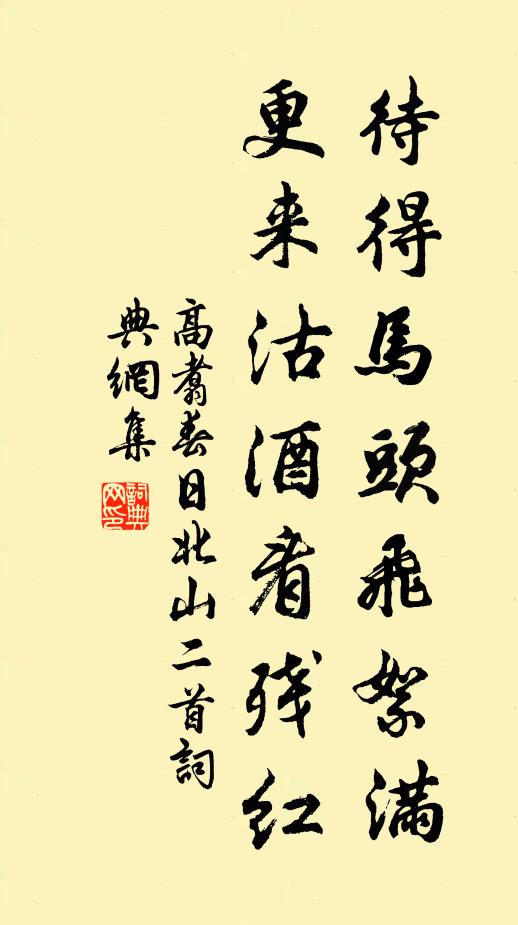 待得馬頭飛絮滿
更来沽酒看残红
高翥春日北山二首詞
典網集
詞典網印